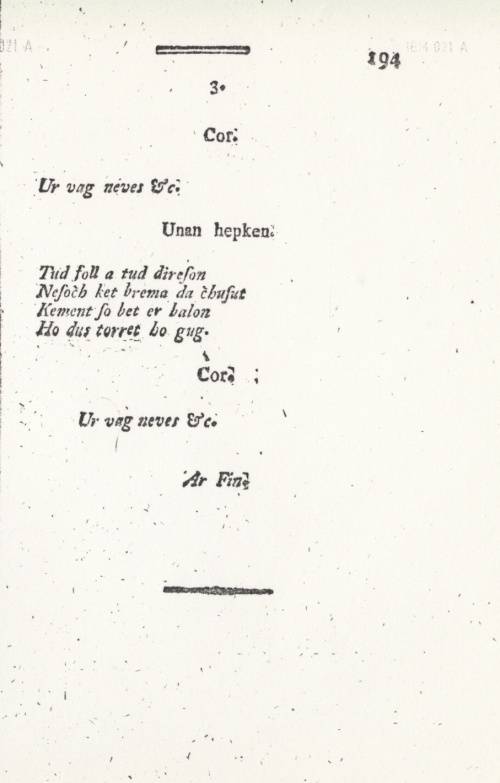 194
3.
Cor.
Ur vag neves &c.
Unan hepken.
Tud foll a tud direſon
Neſoc̈h ket brema da c̈huſut
Kement ſo bet er balon
Ho dus torret ho gug.
Cor.
Ur vag neves &c.
Ar Fin.